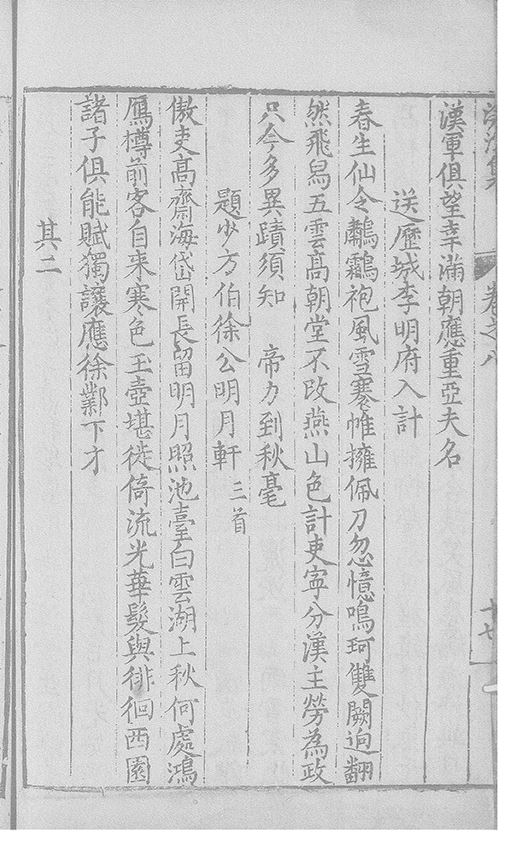 漢軍俱望幸滿朝應重亞夫名
送歷城李明府入計
春生仙令鸘鷫袍風雪褰帷擁佩刀忽憶鳴珂雙闕逈翻
然飛舄五雲高朝堂不改燕山色計吏寧分漢主勞為政
只今多異蹟須知 帝力到秋毫
題少方伯徐公明月軒 三首
傲吏高齋海岱開長留明月照池臺白雲湖上秋何處鴻
鴈樽前客自来寒色玉壺堪徙倚流光華髮與徘徊西園
諸子俱能賦獨讓應徐鄴下才
其二